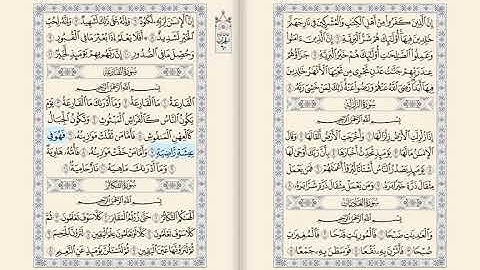 إِنَّ ٱلَّذِينَ كَفَرُوا۟ مِنْ أَهْلِ ٱلْكِتَٰبِ وَٱلْمُشْرِكِينَ فِى نَارِ جَهَنَّمَ
خَٰلِدِينَ فِيهَآ أُو۟لَٰٓئِكَ هُمْ شَرُّ ٱلْبَرِيَّةِ ٦ إِنَّ ٱلَّذِينَ ءَامَنُوا۟
وَعَمِلُوا۟ ٱلصَّٰلِحَٰتِ أُو۟لَٰٓئِكَ هُمْ خَيْرُ ٱلْبَرِيَّةِ ٧ جَزَآؤُهُمْ
عِندَ رَبِّهِمْ جَنَّٰتُ عَدْنٍ تَجْرِى مِن تَحْتِهَا ٱلْأَنْهَٰرُ خَٰلِدِينَ
فِيهَآ أَبَدًا رَّضِىَ ٱللَّهُ عَنْهُمْ وَرَضُوا۟ عَنْهُ ذَٰلِكَ لِمَنْ خَشِىَ رَبَّهُۥ ٨
سُورَةُ الزَّلْزَلَةِ
بِسْمِ ٱللَّهِ ٱلرَّحْمَٰنِ ٱلرَّحِيمِ
إِذَا زُلْزِلَتِ ٱلْأَرْضُ زِلْزَالَهَا ١ وَأَخْرَجَتِ ٱلْأَرْضُ أَثْقَالَهَا ٢ وَقَالَ
ٱلْإِنسَٰنُ مَا لَهَا ٣ يَوْمَئِذٍ تُحَدِّثُ أَخْبَارَهَا ٤ بِأَنَّ رَبَّكَ أَوْحَىٰ لَهَا
٥ يَوْمَئِذٍ يَصْدُرُ ٱلنَّاسُ أَشْتَاتًا لِّيُرَوْا۟ أَعْمَٰلَهُمْ ٦ فَمَن يَعْمَلْ
مِثْقَالَ ذَرَّةٍ خَيْرًا يَرَهُۥ ٧ وَمَن يَعْمَلْ مِثْقَالَ ذَرَّةٍ شَرًّا يَرَهُۥ ٨
سُورَةُ العَادِيَاتِ
بِسْمِ ٱللَّهِ ٱلرَّحْمَٰنِ ٱلرَّحِيمِ
وَٱلْعَٰدِيَٰتِ ضَبْحًا ١ فَٱلْمُورِيَٰتِ قَدْحًا ٢ فَٱلْمُغِيرَٰتِ
صُبْحًا ٣ فَأَثَرْنَ بِهِۦ نَقْعًا ٤ فَوَسَطْنَ بِهِۦ جَمْعًا ٥
إِنَّ ٱلْإِنسَٰنَ لِرَبِّهِۦ لَكَنُودٌ ٦ وَإِنَّهُۥ عَلَىٰ ذَٰلِكَ لَشَهِيدٌ ٧ وَإِنَّهُۥ لِحُبِّ
ٱلْخَيْرِ لَشَدِيدٌ ٨ أَفَلَا يَعْلَمُ إِذَا بُعْثِرَ مَا فِى ٱلْقُبُورِ ٩
وَحُصِّلَ مَا فِى ٱلصُّدُورِ ١٠ إِنَّ رَبَّهُم بِهِمْ يَوْمَئِذٍ لَّخَبِيرٌۢ ١١
سُورَةُ القَارِعَةِ
بِسْمِ ٱللَّهِ ٱلرَّحْمَٰنِ ٱلرَّحِيمِ
ٱلْقَارِعَةُ ١ مَا ٱلْقَارِعَةُ ٢ وَمَآ أَدْرَىٰكَ مَا ٱلْقَارِعَةُ ٣ يَوْمَ
يَكُونُ ٱلنَّاسُ كَٱلْفَرَاشِ ٱلْمَبْثُوثِ ٤ وَتَكُونُ ٱلْجِبَالُ
كَٱلْعِهْنِ ٱلْمَنفُوشِ ٥ فَأَمَّا مَن ثَقُلَتْ مَوَٰزِينُهُۥ ٦ فَهُوَ فِى
عِيشَةٍ رَّاضِيَةٍ ٧ وَأَمَّا مَنْ خَفَّتْ مَوَٰزِينُهُۥ ٨ فَأُمُّهُۥ هَاوِيَةٌ
٩ وَمَآ أَدْرَىٰكَ مَا هِيَهْ ١٠ نَارٌ حَامِيَةٌۢ ١١
سُورَةُ التَّكَاثُرِ
بِسْمِ ٱللَّهِ ٱلرَّحْمَٰنِ ٱلرَّحِيمِ
أَلْهَىٰكُمُ ٱلتَّكَاثُرُ ١ حَتَّىٰ زُرْتُمُ ٱلْمَقَابِرَ ٢ كَلَّا سَوْفَ تَعْلَمُونَ
٣ ثُمَّ كَلَّا سَوْفَ تَعْلَمُونَ ٤ كَلَّا لَوْ تَعْلَمُونَ
عِلْمَ ٱلْيَقِينِ ٥ لَتَرَوُنَّ ٱلْجَحِيمَ
٦ ثُمَّ لَتَرَوُنَّهَا عَيْنَ ٱلْيَقِينِ ٧ ثُمَّ لَتُسْـَٔلُنَّ يَوْمَئِذٍ عَنِ ٱلنَّعِيمِ ٨